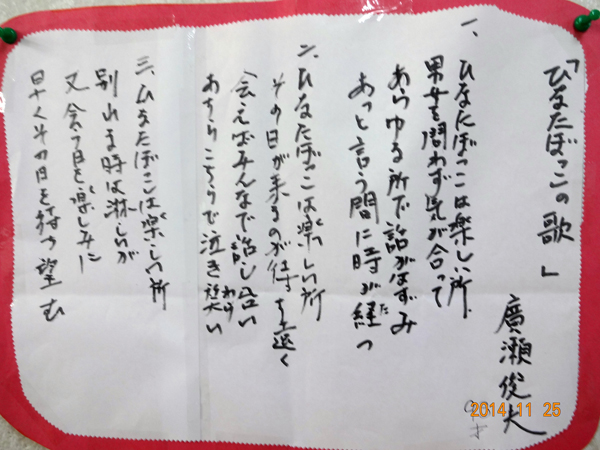 「ひなたぼっこの歌」
廣瀬俊夫
一、ひなたぼっこは楽しい所
男女を問わず気が合って
あらゆる所で話がはずみ
あっと言う間に時が経つ
た
二、ひなたぼっこは楽しい所
その日が来るのが待ち遠く
会えばみんなで話し合い
あちらこちらで泣き笑い
わら
三、ひなたぼっこは楽しい所
別れる時は淋しいが
又会う日を楽しみに
早くその日を待つ望む
2014 11 25